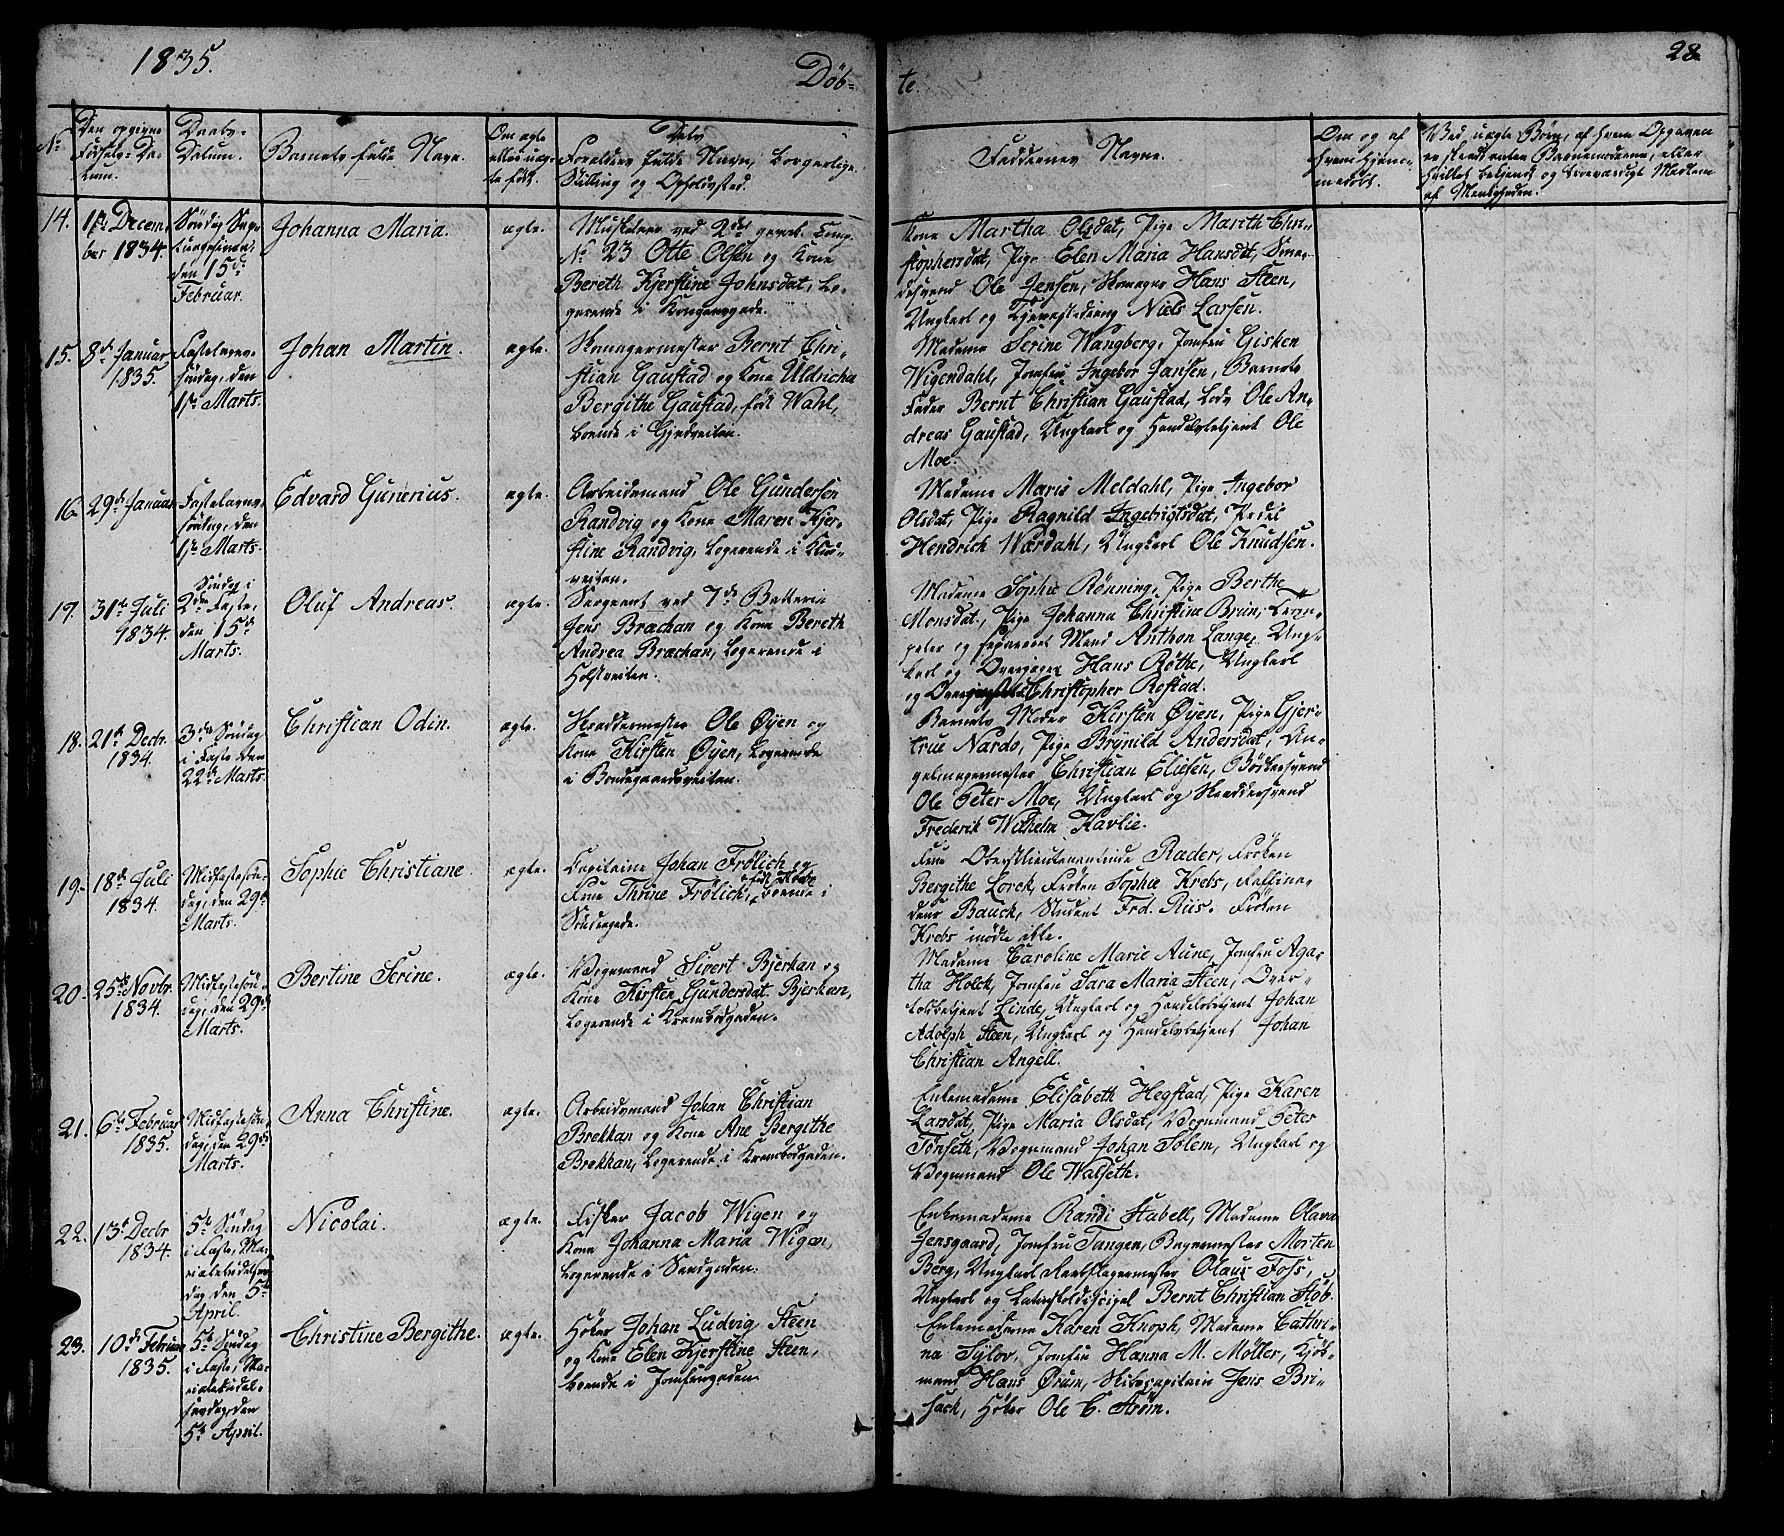 1835.
Döb-
te.
28.
No
Den opgivne
Fødsels Da-
tum.
Daabs-
Datum.
Barnets fulde Navn.
Om ægte
eller uæg-
te født.
Dets
Forældres fulde Navn, borgerlige
Stilling og Opholdssted.
Faddernes Navne.
Om og af
hvem hjem-
medøbt.
Ved uægte Børn, af hvem Opgaven
er skeedt enten Barnemoderen, eller
hvilket bekjendt og troeværdigt Medlem
af Menigheden.
14.
Decem-
ber 1834.
Søndag Sep-
tuagesima,
den 15de
Februar.
Johanna Maria.
ægte.
Musketeer ved 2det gevorb. Comp.
No 23 Otte Olsen og Kone
Bereth Kjerstine Johnsdat, lo-
gerende i Kongensgade.
Kone Martha Olsdat, Pige Marith Chri-
stophersdat, Pige Elen Maria Hansdat, Sme-
desvend Ole Jensen, Skomager Hans Steen,
Ungkarl og Niels Larsen.
15.
8de Januar
1835.
Fastelavns-
søndag, den
1ste Marts.
Johan Martin.
ægte.
Skomagermester Bernt Chri-
stian Gaustad og Kone Uldricha
Bergithe Gaustad, født Wahl,
boende i Gjetveiten.
Madame Serine Wangberg, Jomfru Gisken
Wigendahl, Jomfru Ingebor Jansen, Barnets
Fader Bernt Christian Gaustad, Lods Ole An-
dreas Gaustad, Ungkarl og Handelsbetjent Ole
Moe.
16.
29de Januar
Fastelavns-
søndag, den
1ste Marts.
Edvard Gunerius.
ægte.
Arbeidsmand Ole Gundersen
Randvig og Kone Maren Kjer-
stine Randvig, logerende i
veiten.
Madame Maris Meldahl, Pige Ingebor
Olsdat, Pige Ragnild Ingebrigtsdat, Pedel
Hendrich Wærdahl, Ungkarl Ole Knudsen.
17.
31te Juli
1834.
Søndag i
2den Faste,
den 15de
Marts.
Oluf Andreas.
ægte.
Sergeant ved 7de Batterie
Jens Brachan og Kone Bereth
Andrea Brachan, logerende i
Holstveiten.
Madame Sophie Rönning, Pige Berthe
Monsdat, Pige Johanna Christine Brun,
og Mand Anthon Lange, Ung-
karl og Overjæger Hans Röthe, Ungkarl
og Christopher Rostad.
18.
21de Decbr.
1834.
3die Søndag
i Faste den
22de Marts.
Christian Odin.
ægte.
Skræddermester Ole Øyen og
Kone Kirsten Øyen, logerende
i Bondegaardsveiten.
Barnets Moder Kirsten Øyen, Pige Gjer-
true Nardo, Pige Brynild Andersdat,
Christian Eliesen, Bødkersvend
Ole Peter Moe, Ungkarl og Skræddersvend
Frederik Wilhelm Kavlie.
19.
18de Juli
1834.
Midfasteson-
dag, den 29de
Marts.
Sophie Christiane.
ægte.
Capitaine Johan Frölich og
Frue Thrine Frölich, boende i
Søndregade.
Frue Oberstlieutenantinde Ræder, Frøken
Bergithe Lorck, Frøken Sophie Krebs, Raffina-
deur Bauck, Student Frd. Riis. Frøken
Krebs mødte ikke.
20.
25de Novbr.
1834.
Midfastesøn-
dag, den 29de
Marts.
Bertine Serine.
ægte.
Vognmand Sivert Bjerkan og
Kone Kirsten Gundersdat. Bjerkan,
logerende i Krambodgaden.
Madame Caroline Marie Aune, Jomfru Aga-
tha Holck, Jomfru Sara Maria Steen, Over-
toldbetjent Linde, Ungkarl og Handelsbetjent Johan
Adolph Steen, Ungkarl og Handelsbetjent Johan
Christian Angell.
21.
6te Februar
1835.
Midfasteson-
dag, den 29de
Marts.
Anna Christine.
ægte.
Arbeidsmand Johan Christian
Brekkan og Kone Ane Bergithe
Brekkan, logerende i Krambodgaden.
Enkemadame Elisabeth Hegstad, Pige Karen
Larsdat, Pige Maria Olsdat, Vognmand Peter
Tonseth, Vognmand Johan Solem, Ungkarl og
Vognmand Ole Walseth.
22.
13de Decbr
1834.
5te Søndag
i Faste, Ma-
riæbebudelses-
dag den 5te
April
Nicolai.
ægte.
Fisker Jacob Wigen og
Kone Johanna Maria Wigen,
logerende i Sandgaden.
Enkemadame Randi Stabell, Madame Olava
Jensgaard, Jomfru Tangen, Bagermester Morten
Berg, Ungkarl Rebslagermester Olaus Foss,
Ungkarl og Latinskoldiscipel Bernt Christian Stöb.
23.
10de Februar
1835.
5te Søndag
i Faste, Ma-
riæbebudel-
sesdag, den
5te April.
Christine Bergithe.
ægte.
Høker Johan Ludvig Steen
og Kone Elen Kjerstine Steen,
boende i Jomfrugaden.
Enkemadame Karen Knoph, Madame Cathri-
na Sylov, Jomfru Hanna M. Møller, Kjøb-
mand Hans Ørum, Skibscapitain Jens Bri-
sach, Høker Ole C. Strøm.